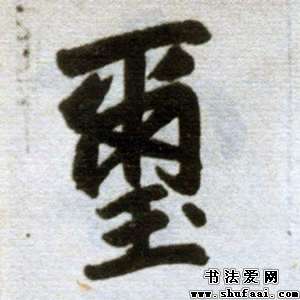 璽
书法爱网
www.shufaai.com